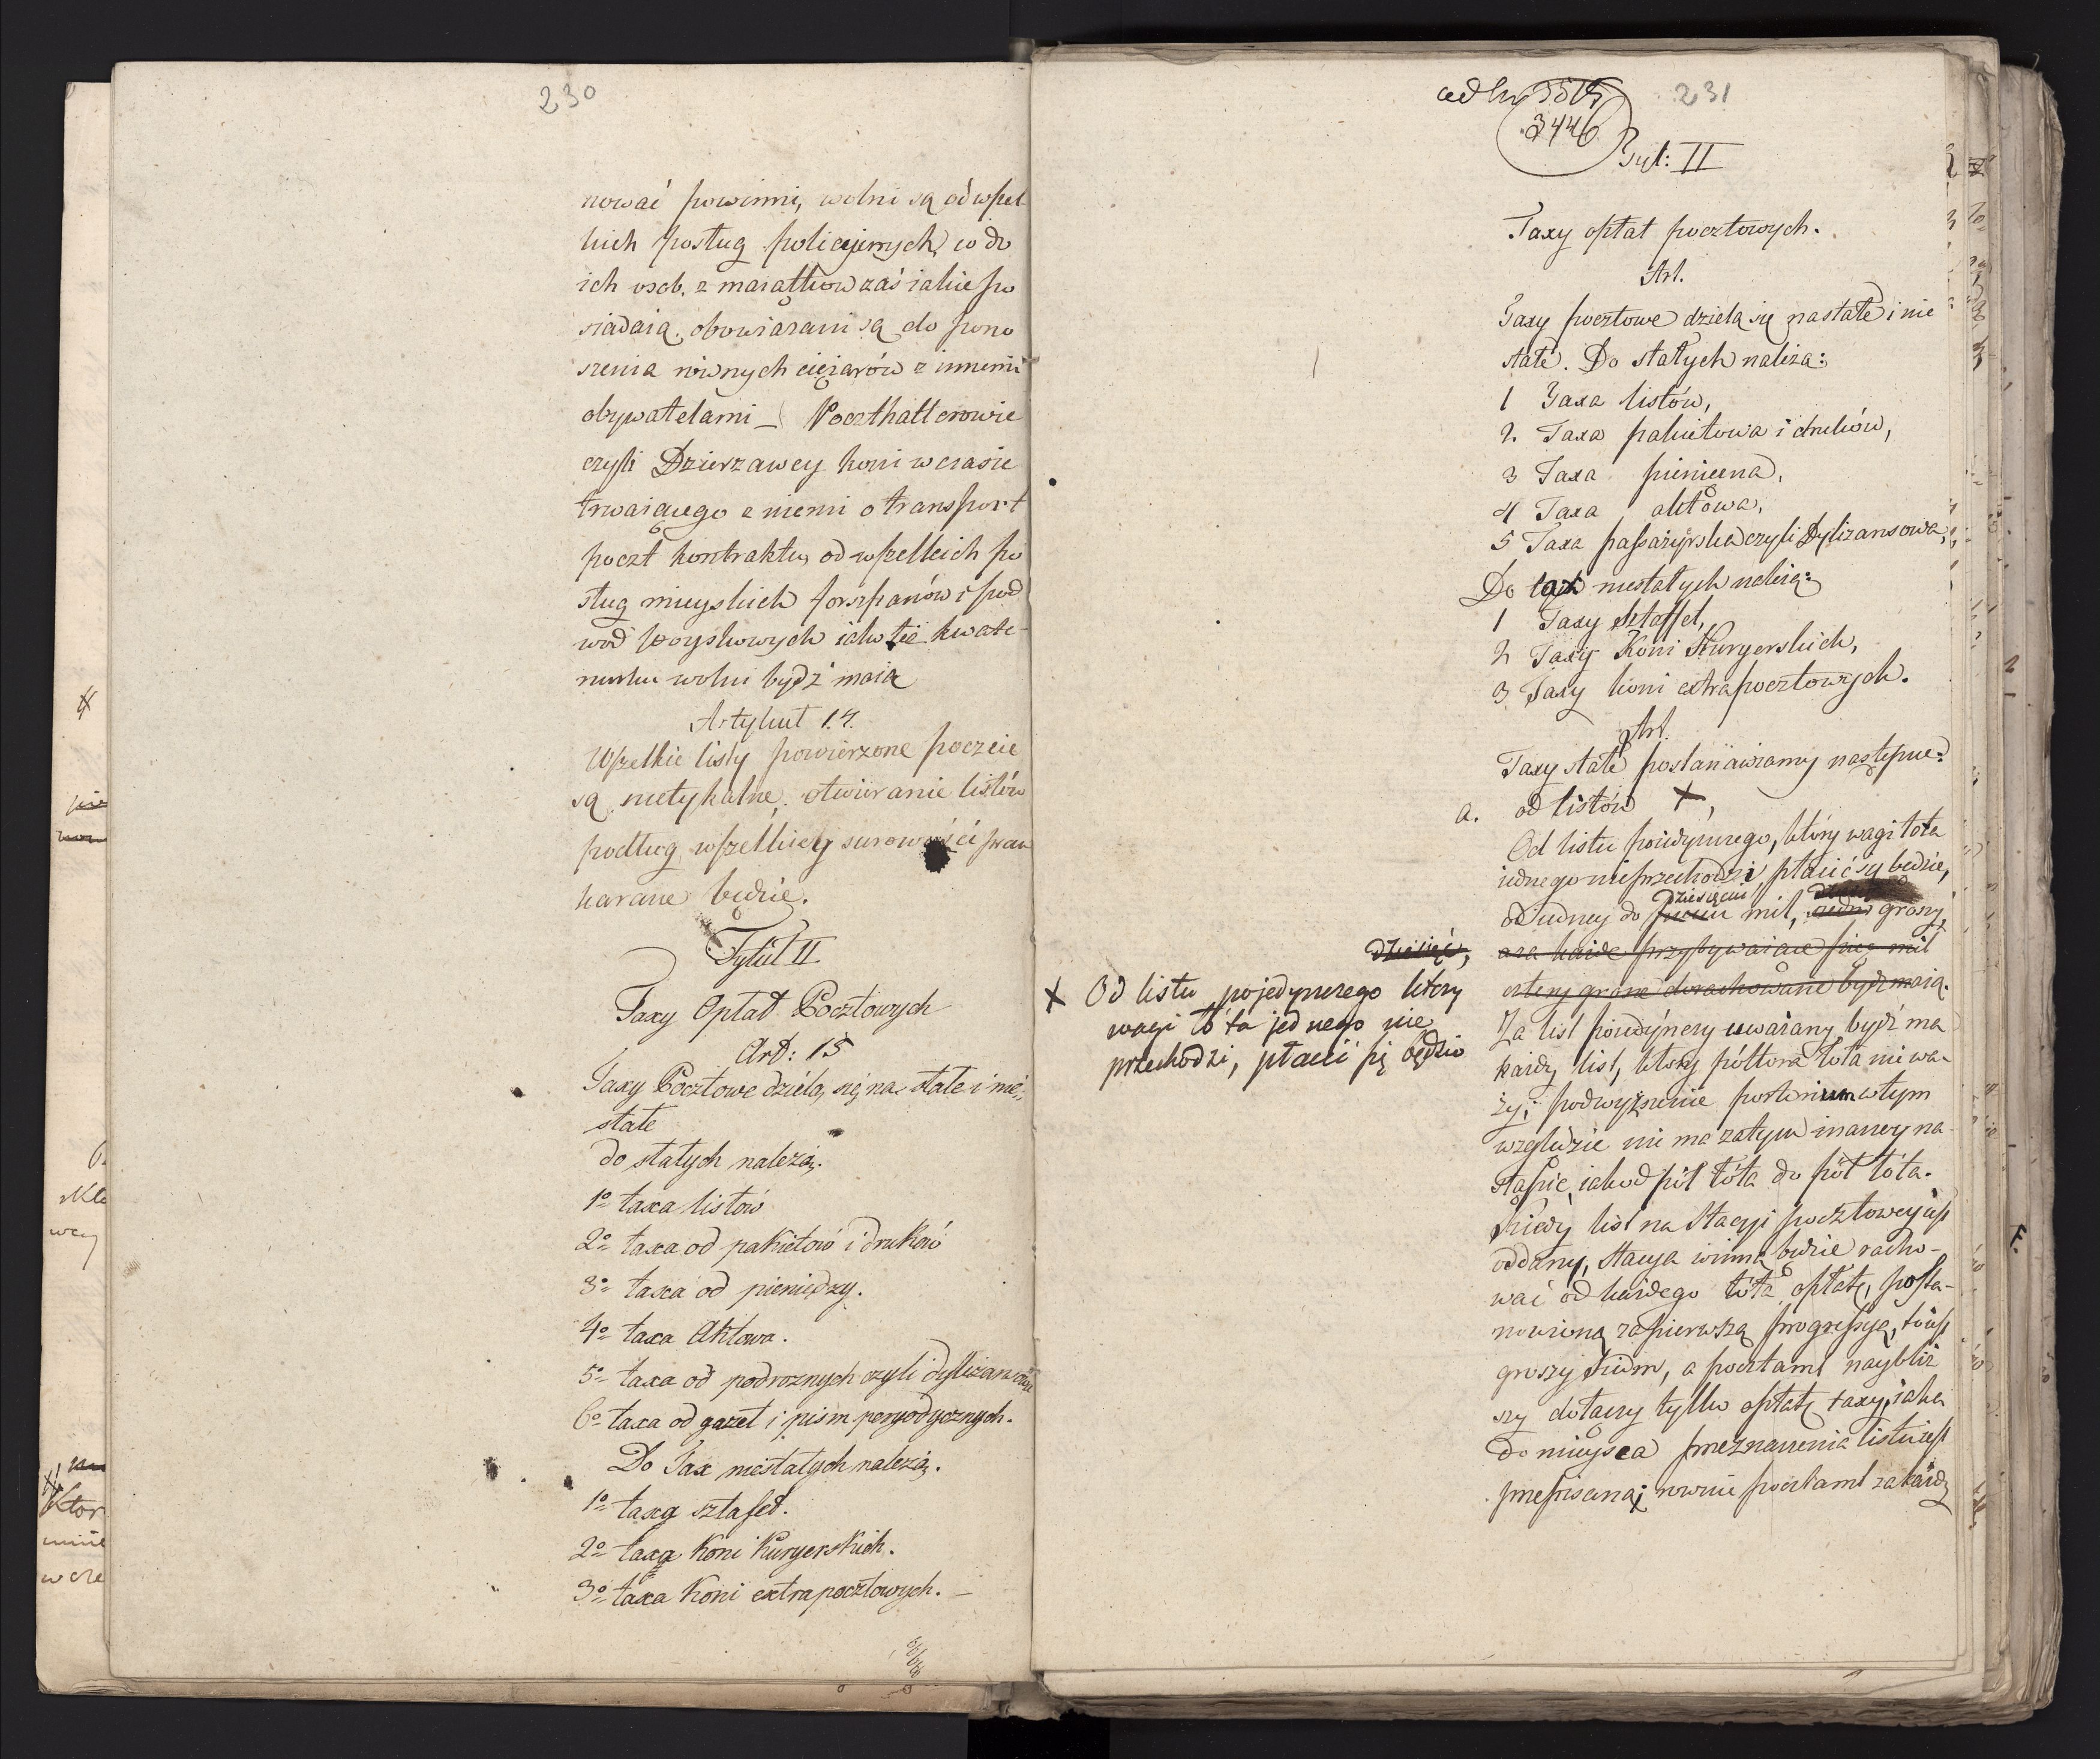 230
nować powinni, wolni są od wszel
kich posług policyjnych, co do
ich osob, z maiątkow zaś iakie po
siadaią, obowiązani są do pono
szenia rôwnych ciężarów z innemi
obywatelami _ Poczthalterowie
czyli Dzierzawcy koni w czasie
trwaiącego z niemi o transport
poczt kontraktu, od wszelkich po
sług mieyskich forszpanów i pod
wod woyskowych iako też kwate-
runku wolni bydź maią
Artykuł 14.
Wszelkie listy powierzone poczcie
są nietykalne, otwieranie listów
podług wszelkiey surowości praw
karane będzie.
Tytuł II
Taxy Opłat Pocztowych
Art: 15
Taxy Pocztowe dzielą się na stałe i nie-
stałe
do stałych należą.
1º taxa listów
2º taxa od pakietów i druków
3º taxa od pieniędzy.
4º taxa Aktowa.
5º taxa od podroznych czyli dyliżansowa
6º taxa od gazet i pism peryodycznych.
Do Tax niestałych należą.
1º taxa sztafet.
2º taxa Koni Kuryerskich.
3º taxa Koni extrapocztowych. _
231
3446
Tyt: II
Taxy opłat pocztowych.
Art.
Taxy pocztowe dzielą się na stałe i nie
stałe. Do stałych należą:
1 Taxa listów,
2. Taxa pakietowa i druków,
3 Taxa pieniężna,
4 Taxa aktowa,
5 Taxa passażyrska czyli Dyliżansowa,
Do tax niestałych należą:
1 Taxy sztaffet,
2 Taxy Koni Kuryerskich,
3 Taxy koni extrapocztowych.
Art.
Taxy stałe postanawiamy następne:
a. od listów X,
Od listu poiedyńczego, który wagi łóta
iednego nieprzechodzi, płacić się będzie,
dziesięciu
od iedney do mil, groszy,
dziesięć,
a za każde przybywaiące pięć mil
cztery grosze dorachowane bydź maią.
X Od listu pojedynczego który
wagi łóta jednego nie
przechodzi, płacić się będzie
Za list poiedyńczy uważany bydź ma
każdy list, który półtora łóta nie wa-
ży; podwyższenie portorium w tym
względzie nie ma zatym inaczey na-
stąpić, iak od pół łóta do pół łóta.
Kiedy list na Stacyi pocztowey iest
oddany, stacya winna będzie racho-
wać od każdego łóta opłatę, posta-
nowioną za pierwszą progressyą, to iest
groszy siedm, a pocztamt naybliż
szy dołączy tylko opłatę taxy, iaka
do mieysca przeznaczenia listu iest
przepisana; rownie pocztamt za każdy